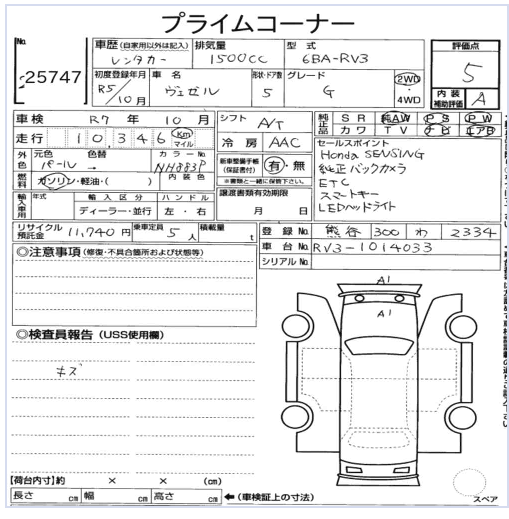 プライムコーナー
No.
25747
車歴 (自家用以外は記入) 排気量 型式
レンタカー 1500cc 6BA-RV3
評価点
5
初度登録年月 車名 形状・ドア数 グレード
R5/10月 ヴェゼル 5 G
2WD
・
4WD
内装
補助評価 A
車検 R7年 10月
走行 10,346 Km マイル
シフト A/T
冷房 AAC
純正品 SR 純AW PS PW
カワ TV ナビ エアB
外色 元色 色替 カラーNo.
パール → NH883P
燃料 ガソリン・軽油・( ) 内装色
新車整備手帳
(保証書付) 有・無
※書類と一緒に保管下さい。
セールスポイント
Honda SENSING
純正バックカメラ
ETC
スマートキー
LEDヘッドライト
輸入車用 年式 輸入区分 ハンドル
ディーラー・並行 左・右
譲渡書類有効期限
月 日
リサイクル
預託金 11,740円 乗車定員 5人 積載量 t
登録No. 熊谷 300 わ 2334
車台No. RV3-1014033
シリアルNo.
◎注意事項 (修復・不具合箇所および状態等)
◎検査員報告 (USS使用欄)
キズ
A1
A1
【荷台内寸】約 × × (cm)
長さ cm 幅 cm 高さ cm
←(車検証上の寸法)
スペア